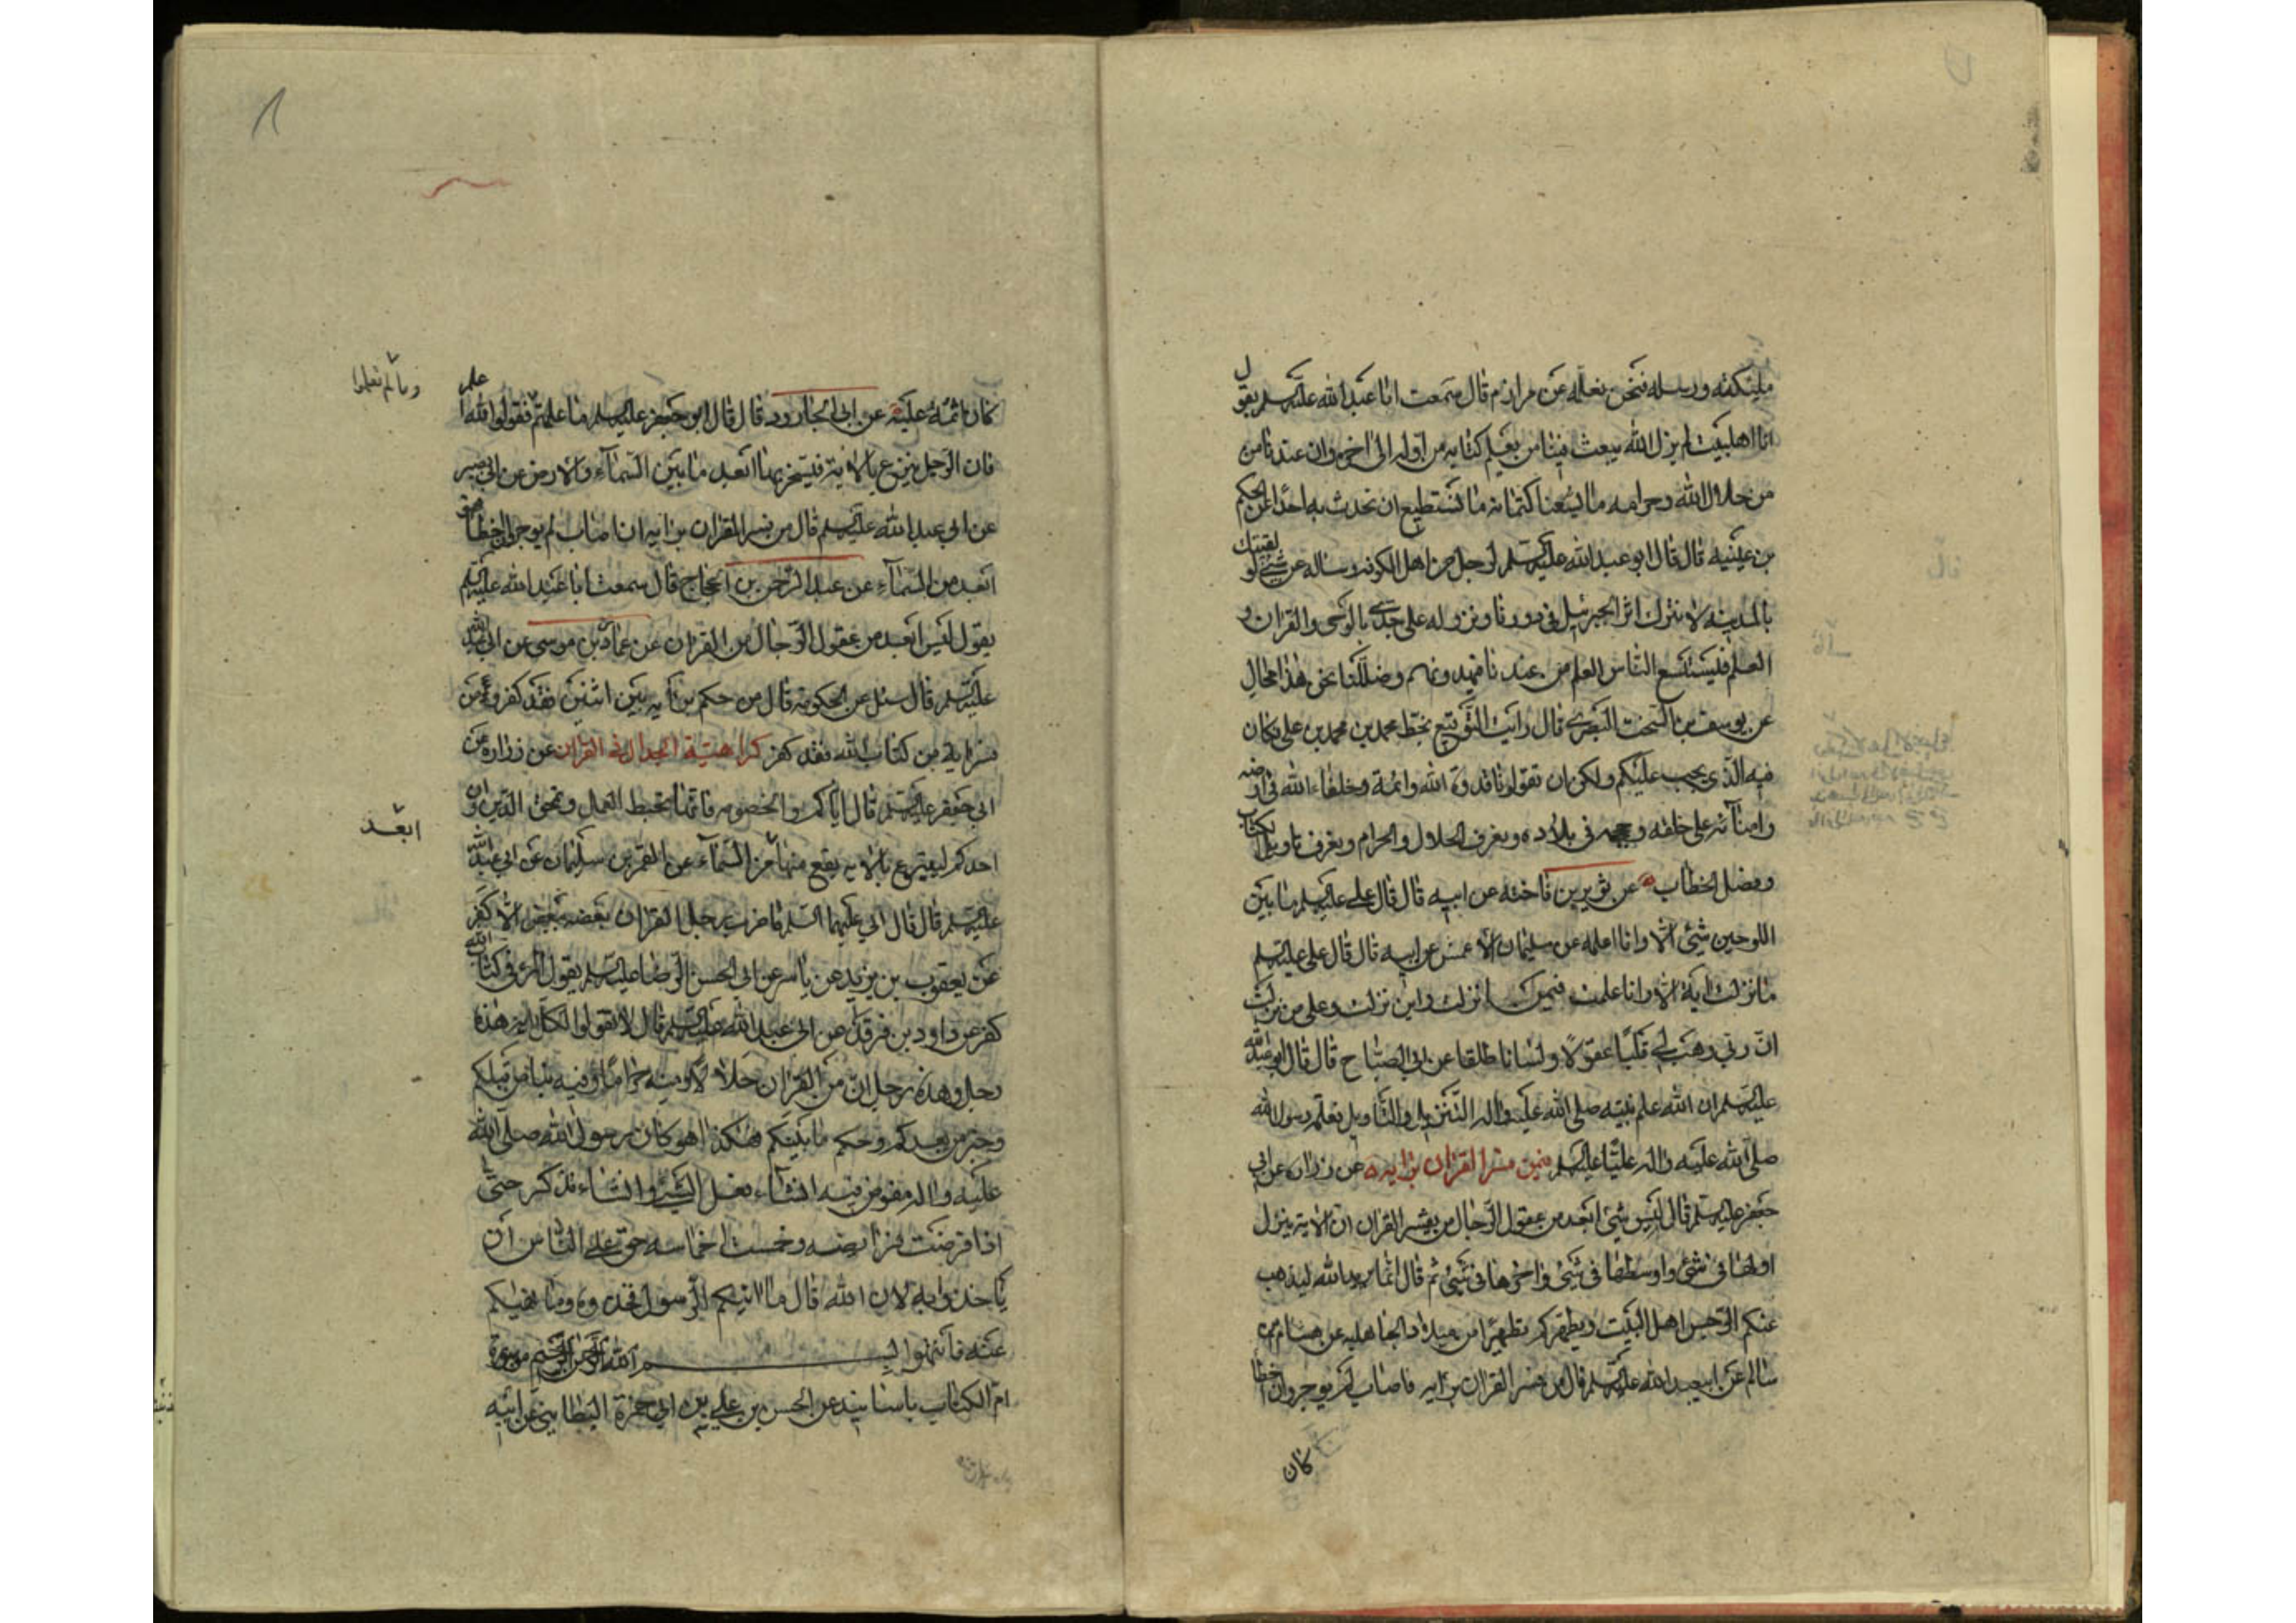 ملئكته ورسله فنحن نعلمه عن مرازم قال سمعت ابا عبد الله عليه السلم يقول
انا اهل بيت لم يزل الله يبعث فينا من يعلم كتابه من اوله الى اخره وان عندنا من
من حلال الله وحرامه ما يسعنا كتمانه ما نستطيع ان نحدث به احدا عن الحكم
بن عيينه قال قال ابو عبد الله عليه السلم لرجل من اهل الكوفه وساله عن شئ لو لقيتك
بالمدينه لا نترك اثر الجبرئيل فى دورنا ونزوله على جدى بالوحى والقران و
العلم فليستسع الناس العلم من عندنا فهيدونهم وضللنا نحن هذا محال
عن يوسف بن السخت البصرى قال رايت التوقيع بخط محمد بن محمد بن على فكان
فيه الذى يجب عليكم ولكن ان تقولوا انا قدوة الله وائمة وخلفاء الله فى ارضه
وامنآئه على خلقه وحججه فى بلاده ونعرف الحلال والحرام ونعرف تاويل الكتاب
وفضل الخطاب عن ثوير بن فاخته عن ابيه قال قال على عليه السلم ما بين
اللوحين شئ الا وانا اعلمه عن سليمان الاعمش عن ابيه قال قال على عليه السلم
ما نزلت اية الا وانا علمت فيمن انزلت واين نزلت وعلى من نزلت
ان ربى وهب لى قلبا عقولا ولسانا طلقا عن ابى الصباح قال قال ابو عبد الله
عليه السلم ان الله علم نبيه صلى الله عليه واله التنزيل والتاويل فعلم رسول الله
صلى الله عليه واله عليا عليه السلم فيمن فسر القران برايه عن زراره عن ابى
جعفر عليه السلم قال ليس شئ ابعد من عقول الرجال من تفسير القران ان الاية ينزل
اولها فى شئ واوسطها فى شئ واخرها فى شئ ثم قال انما يريد الله ليذهب
عنكم الرجس اهل البيت ويطهركم تطهيرا من ميلاد الجاهليه عن هشام بن
سالم عن ابيعبد الله عليه السلم قال من فسر القران برايه فاصاب لم يوجر وان اخطا
كان
كان اثمه عليه عن ابى الجارود قال قال ابو جعفر عليه السلم ما علمتم فقولوا الله اعلم
وما لم تعلموا
فان الرجل ينزع بالاية فيخر بها ابعد ما بين السمآء والارض عن ابى بصير
عن ابى عبد الله عليه السلم قال من فسر القران برايه ان اصاب لم يوجر وان اخطا فهو
ابعد من السمآء عن عبد الرحمن بن الحجاج قال سمعت ابا عبد الله عليه السلم
يقول ليس ابعد من عقول الرجال من القران عن عمار بن موسى عن ابى عبد الله
عليه السلم قال سئل عن الحكومة قال من حكم برايه بين اثنين فقد كفر ومن
فسر اية من كتاب الله فقد كفر كراهية الجدال فى القران عن زراره عن
ابى جعفر عليه السلم قال اياكم والخصومه فانها تحبط العمل وتمحق الدين وان
احدكم لينزع بالاية يقع منها من السمآء عن القمر بن سليمان عن ابى عبد الله
ابعد
عليه السلم قال قال ابى عليهما السلم ما ضرب رجل القران بعضه ببعض الا كفر
عن يعقوب بن يزيد عن ياسر عن ابى الحسن الرضا عليه السلم يقول المرء فى كتاب الله
كفر عن داود بن فرقد عن ابى عبد الله عليه السلم قال لا تقولوا لكل اية هذه
رجل وهذه رجل ان من القران حلالا ومنه حراما وفيه نبا من قبلكم
وخبر من بعدكم وحكم ما بينكم فهكذا هو كان رسول الله صلى الله
عليه واله مفوض فيه انشاء فعل الشئ وانشاء تذكر حتى
اذا فرضت فرايضه وخمست اخماسه حق على الناس ان
ياخذوا به لان الله قال ما اتيكم الرسول فخذوه وما نهيكم
عنه فانتهوا بسم الله الرحمن الرحيم من سورة
ام الكتاب باسانيد عن الحسن بن على بن ابى حمزة البطاينى عن ابيه